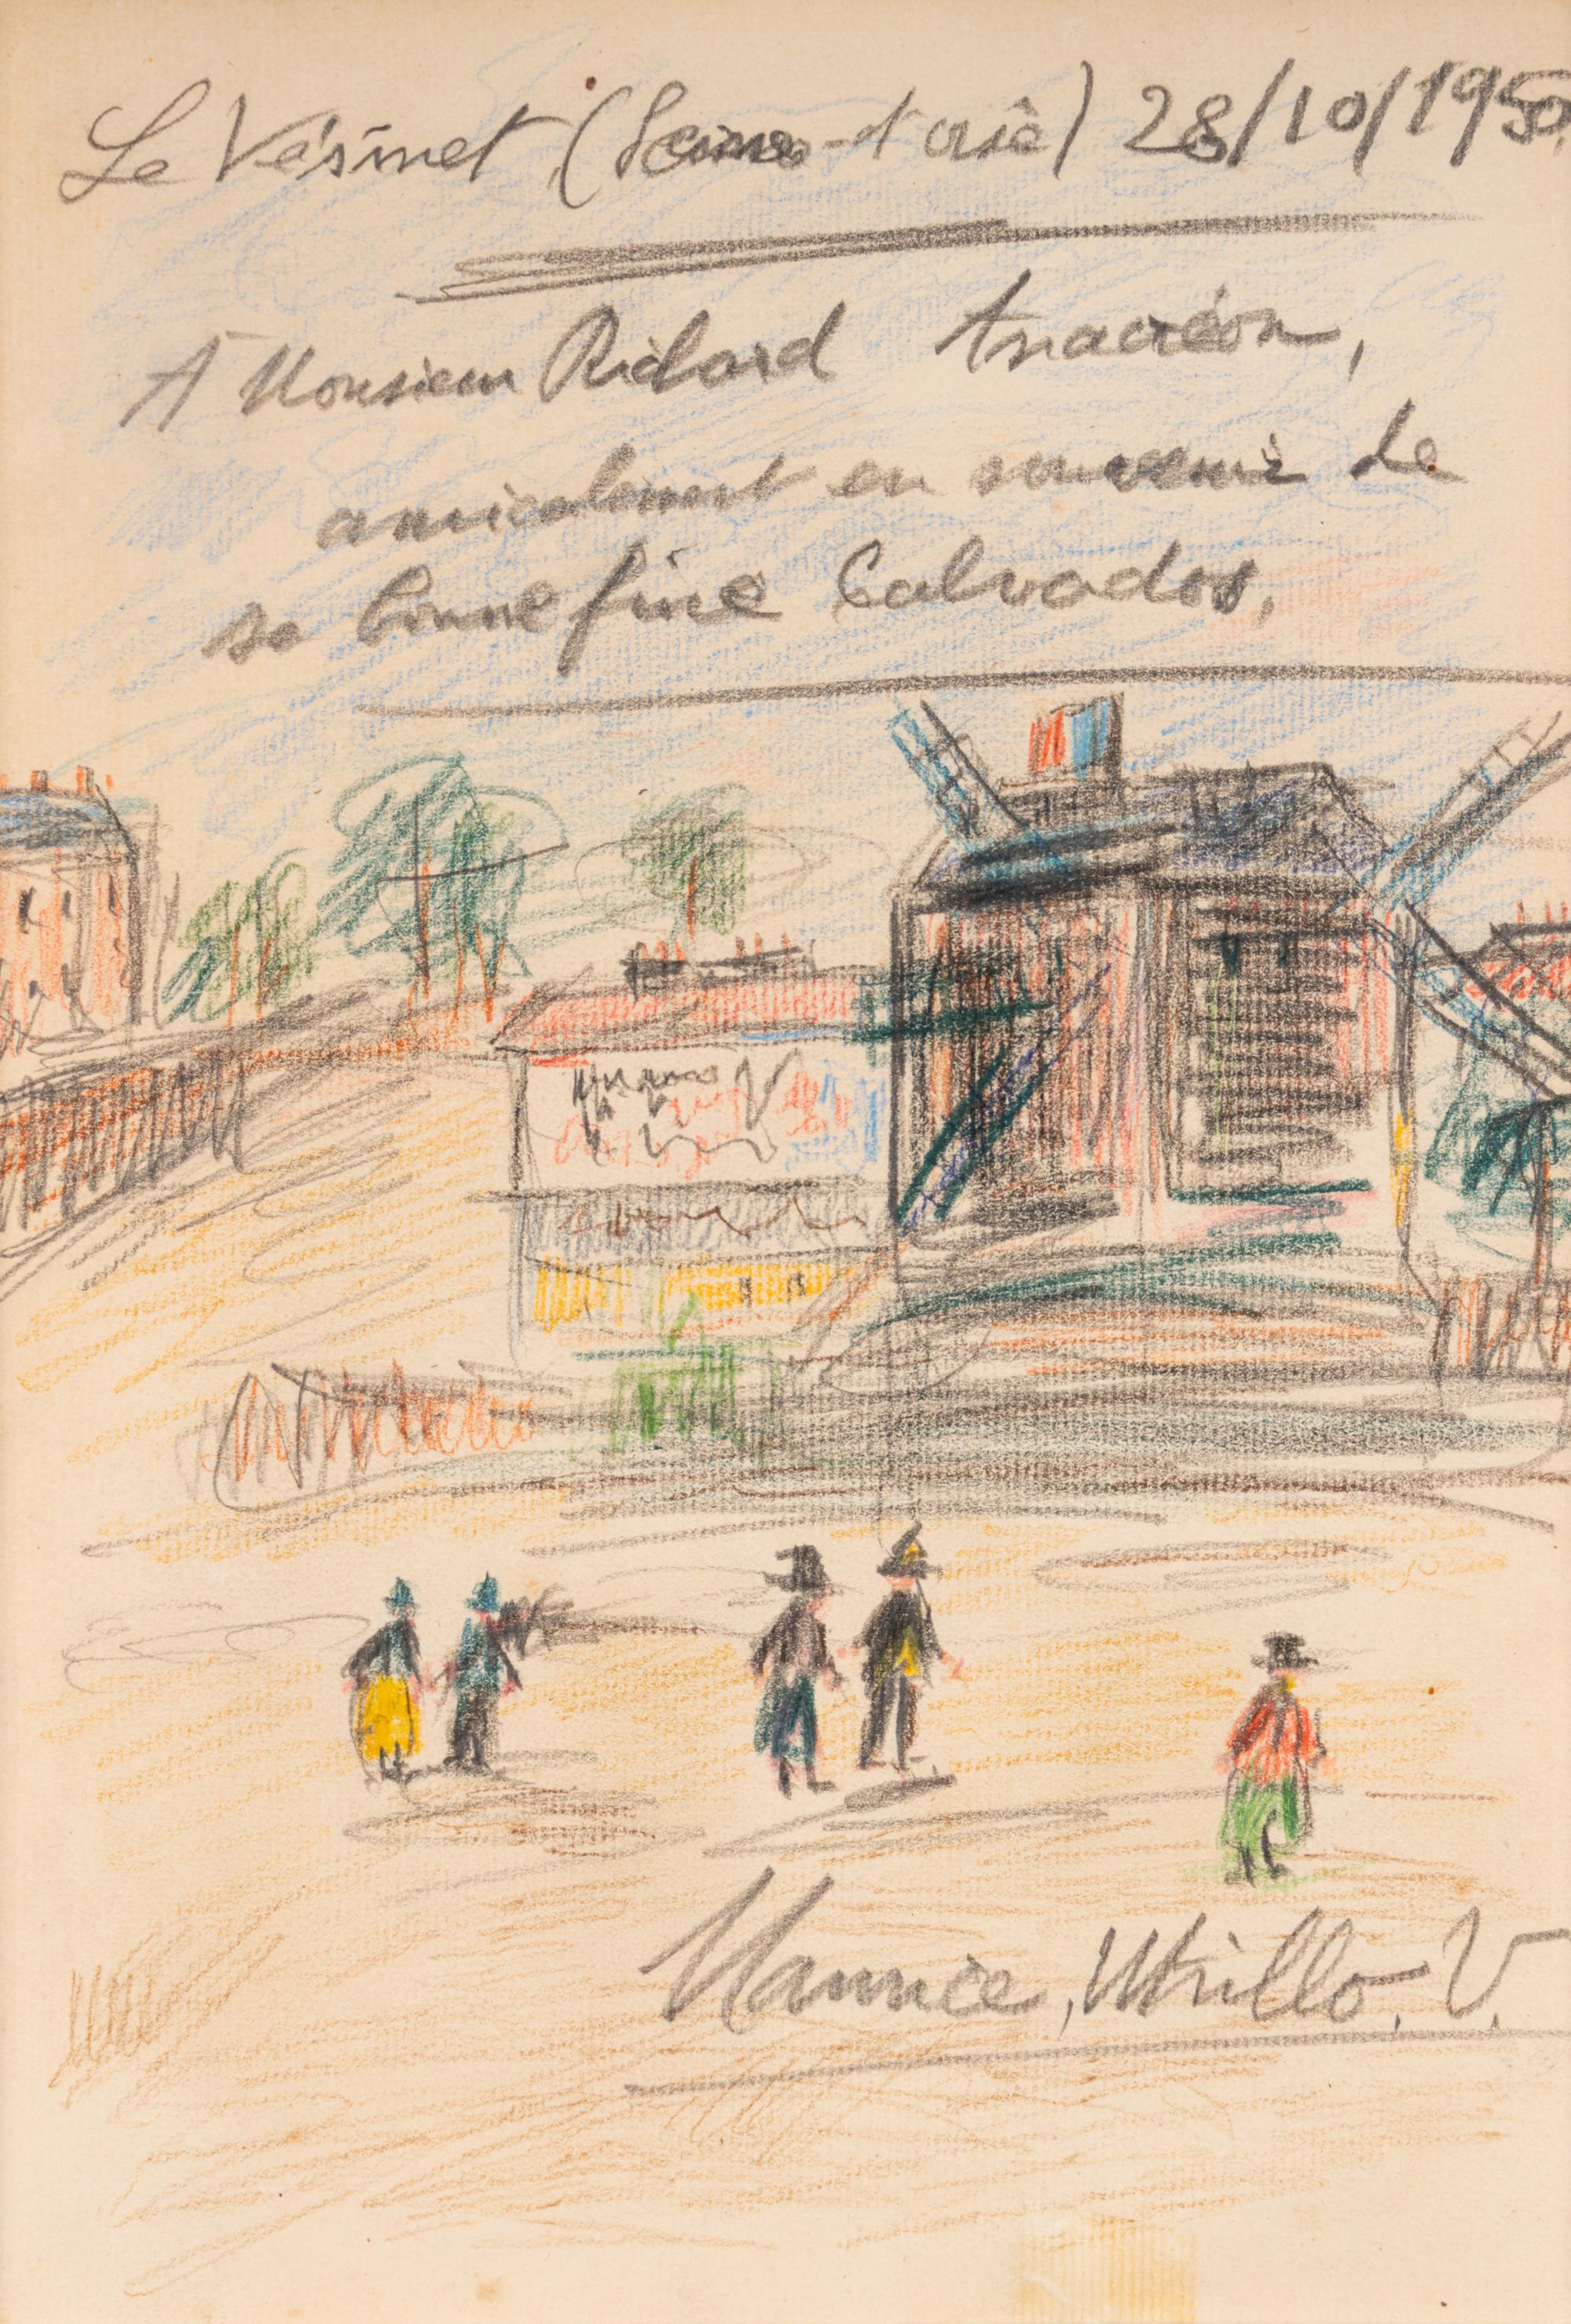 Le Vésinet (Seine-et-oise) 28/10/1950.
A Monsieur Richard Anacréon,
amicalement en souvenir de
sa bonne fine Calvados,
Maurice, Utrillo, V.